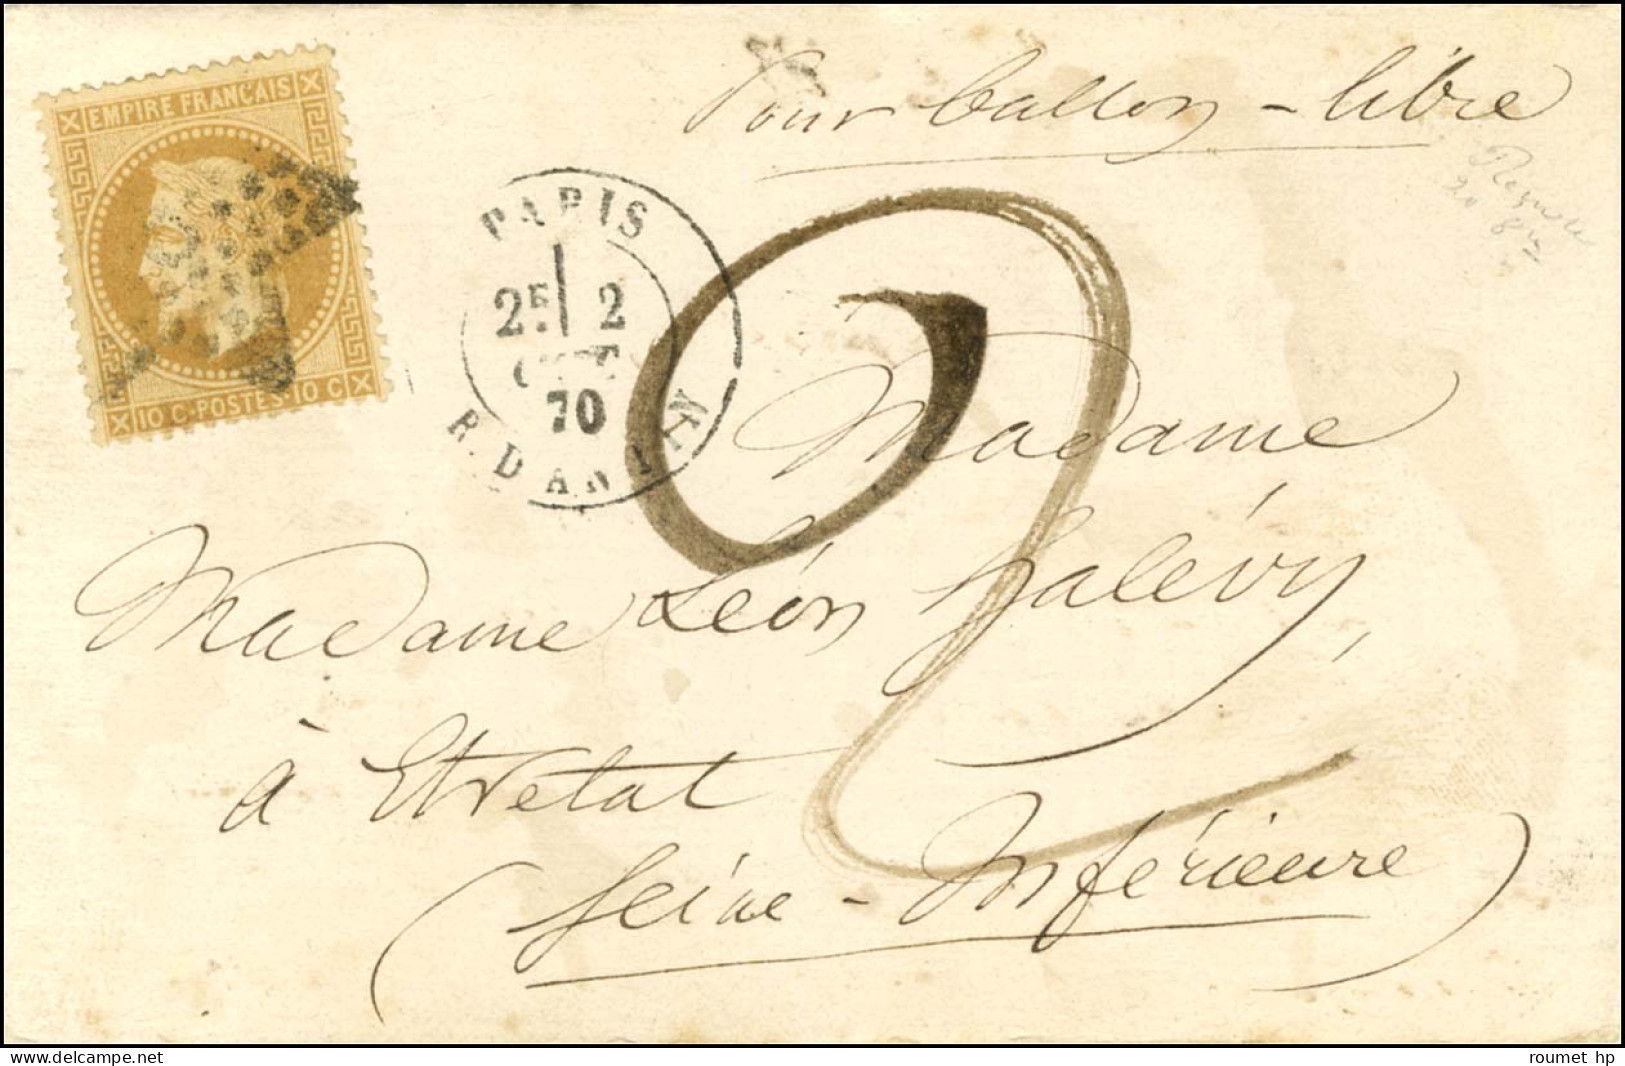 EMPIRE FRANÇAIS
10 C · POSTES · 10 C
Pour ballon-libre
PARIS
2E 2
OCT.
70
R. D'ANTIN
2
Madame
Madame Léon Halévy,
à Etretat
(Seine-Inférieure)
roumet hp